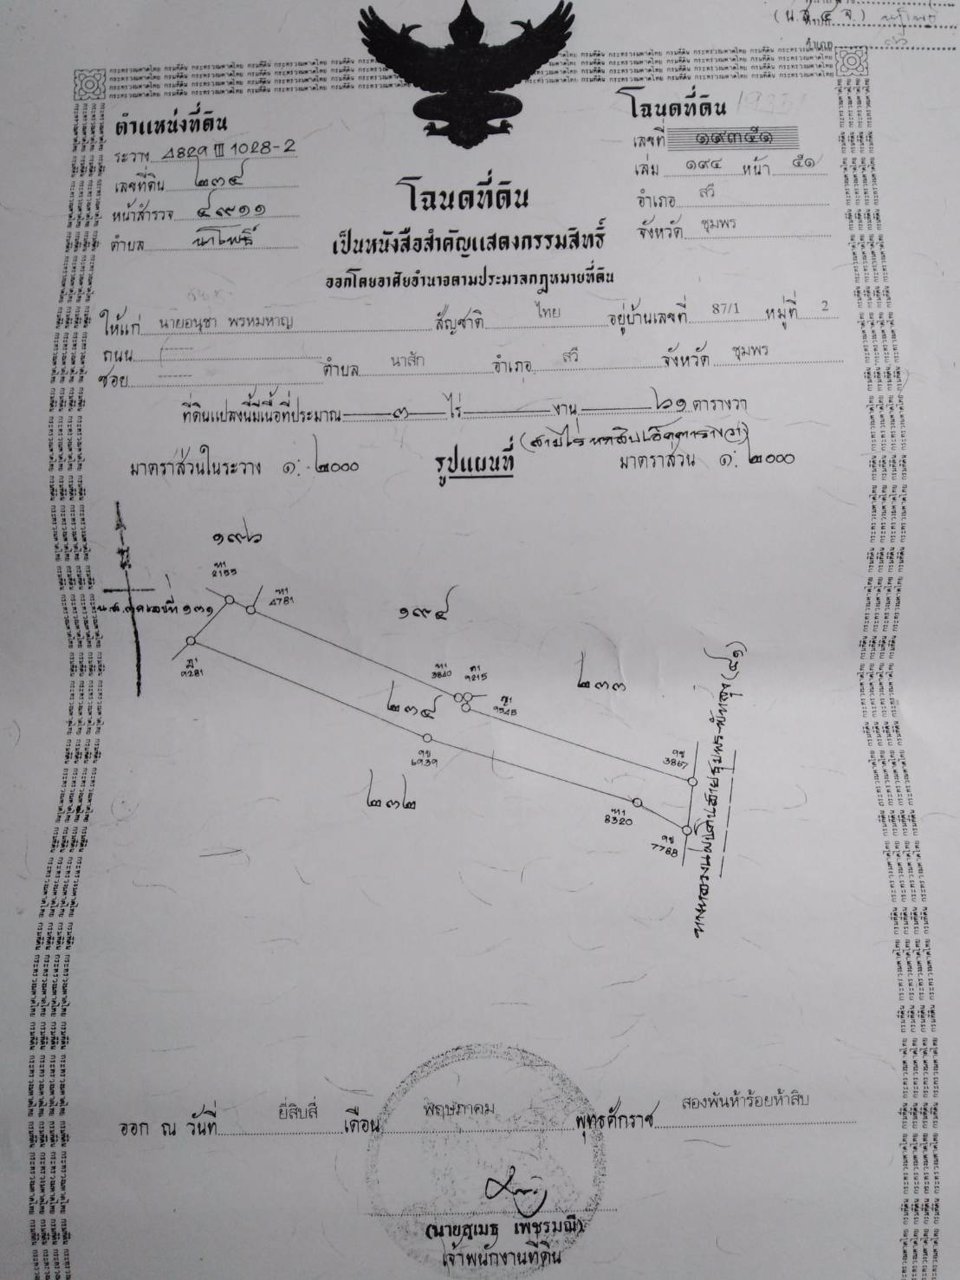 (น.ส.๔ จ.)
โฉนดที่ดิน
ตำแหน่งที่ดิน
เลขที่ ๑๙๓๕๑
ระวาง 4829 III 1028-2
เล่ม ๑๙๔ หน้า ๕๑
เลขที่ดิน ๒๓๔
โฉนดที่ดิน
อำเภอ สวี
หน้าสำรวจ ๔๙๑๑
จังหวัด ชุมพร
ตำบล นาโพธิ์
เป็นหนังสือสำคัญแสดงกรรมสิทธิ์
ออกโดยอาศัยอำนาจตามประมวลกฎหมายที่ดิน
ให้แก่ นายอนุชา พรหมหาญ สัญชาติ ไทย อยู่บ้านเลขที่ 87/1 หมู่ที่ 2
ถนน
ซอย ตำบล นาสัก อำเภอ สวี จังหวัด ชุมพร
ที่ดินแปลงนี้มีเนื้อที่ประมาณ ๓ ไร่ งาน ๖๑ ตารางวา
(สามไร่หกสิบเอ็ดตารางวา)
มาตราส่วนในระวาง ๑:๒๐๐๐ รูปแผนที่ มาตราส่วน ๑:๒๐๐๐
น
๑๙๖
2155
4781
น.ส.๓ก เลขที่ ๑๓๑
๑๙๔
9281
3840
9215
9545
๒๓๓
๒๓๔
6939
3867
๒๓๒
8320
7788
ทางหลวงแผ่นดินสายชุมพร-พัทลุง (๔๑)
ออก ณ วันที่ ยี่สิบสี่ เดือน พฤษภาคม พุทธศักราช สองพันห้าร้อยห้าสิบ
(นายสุเมธ เพชรมณี)
เจ้าพนักงานที่ดิน